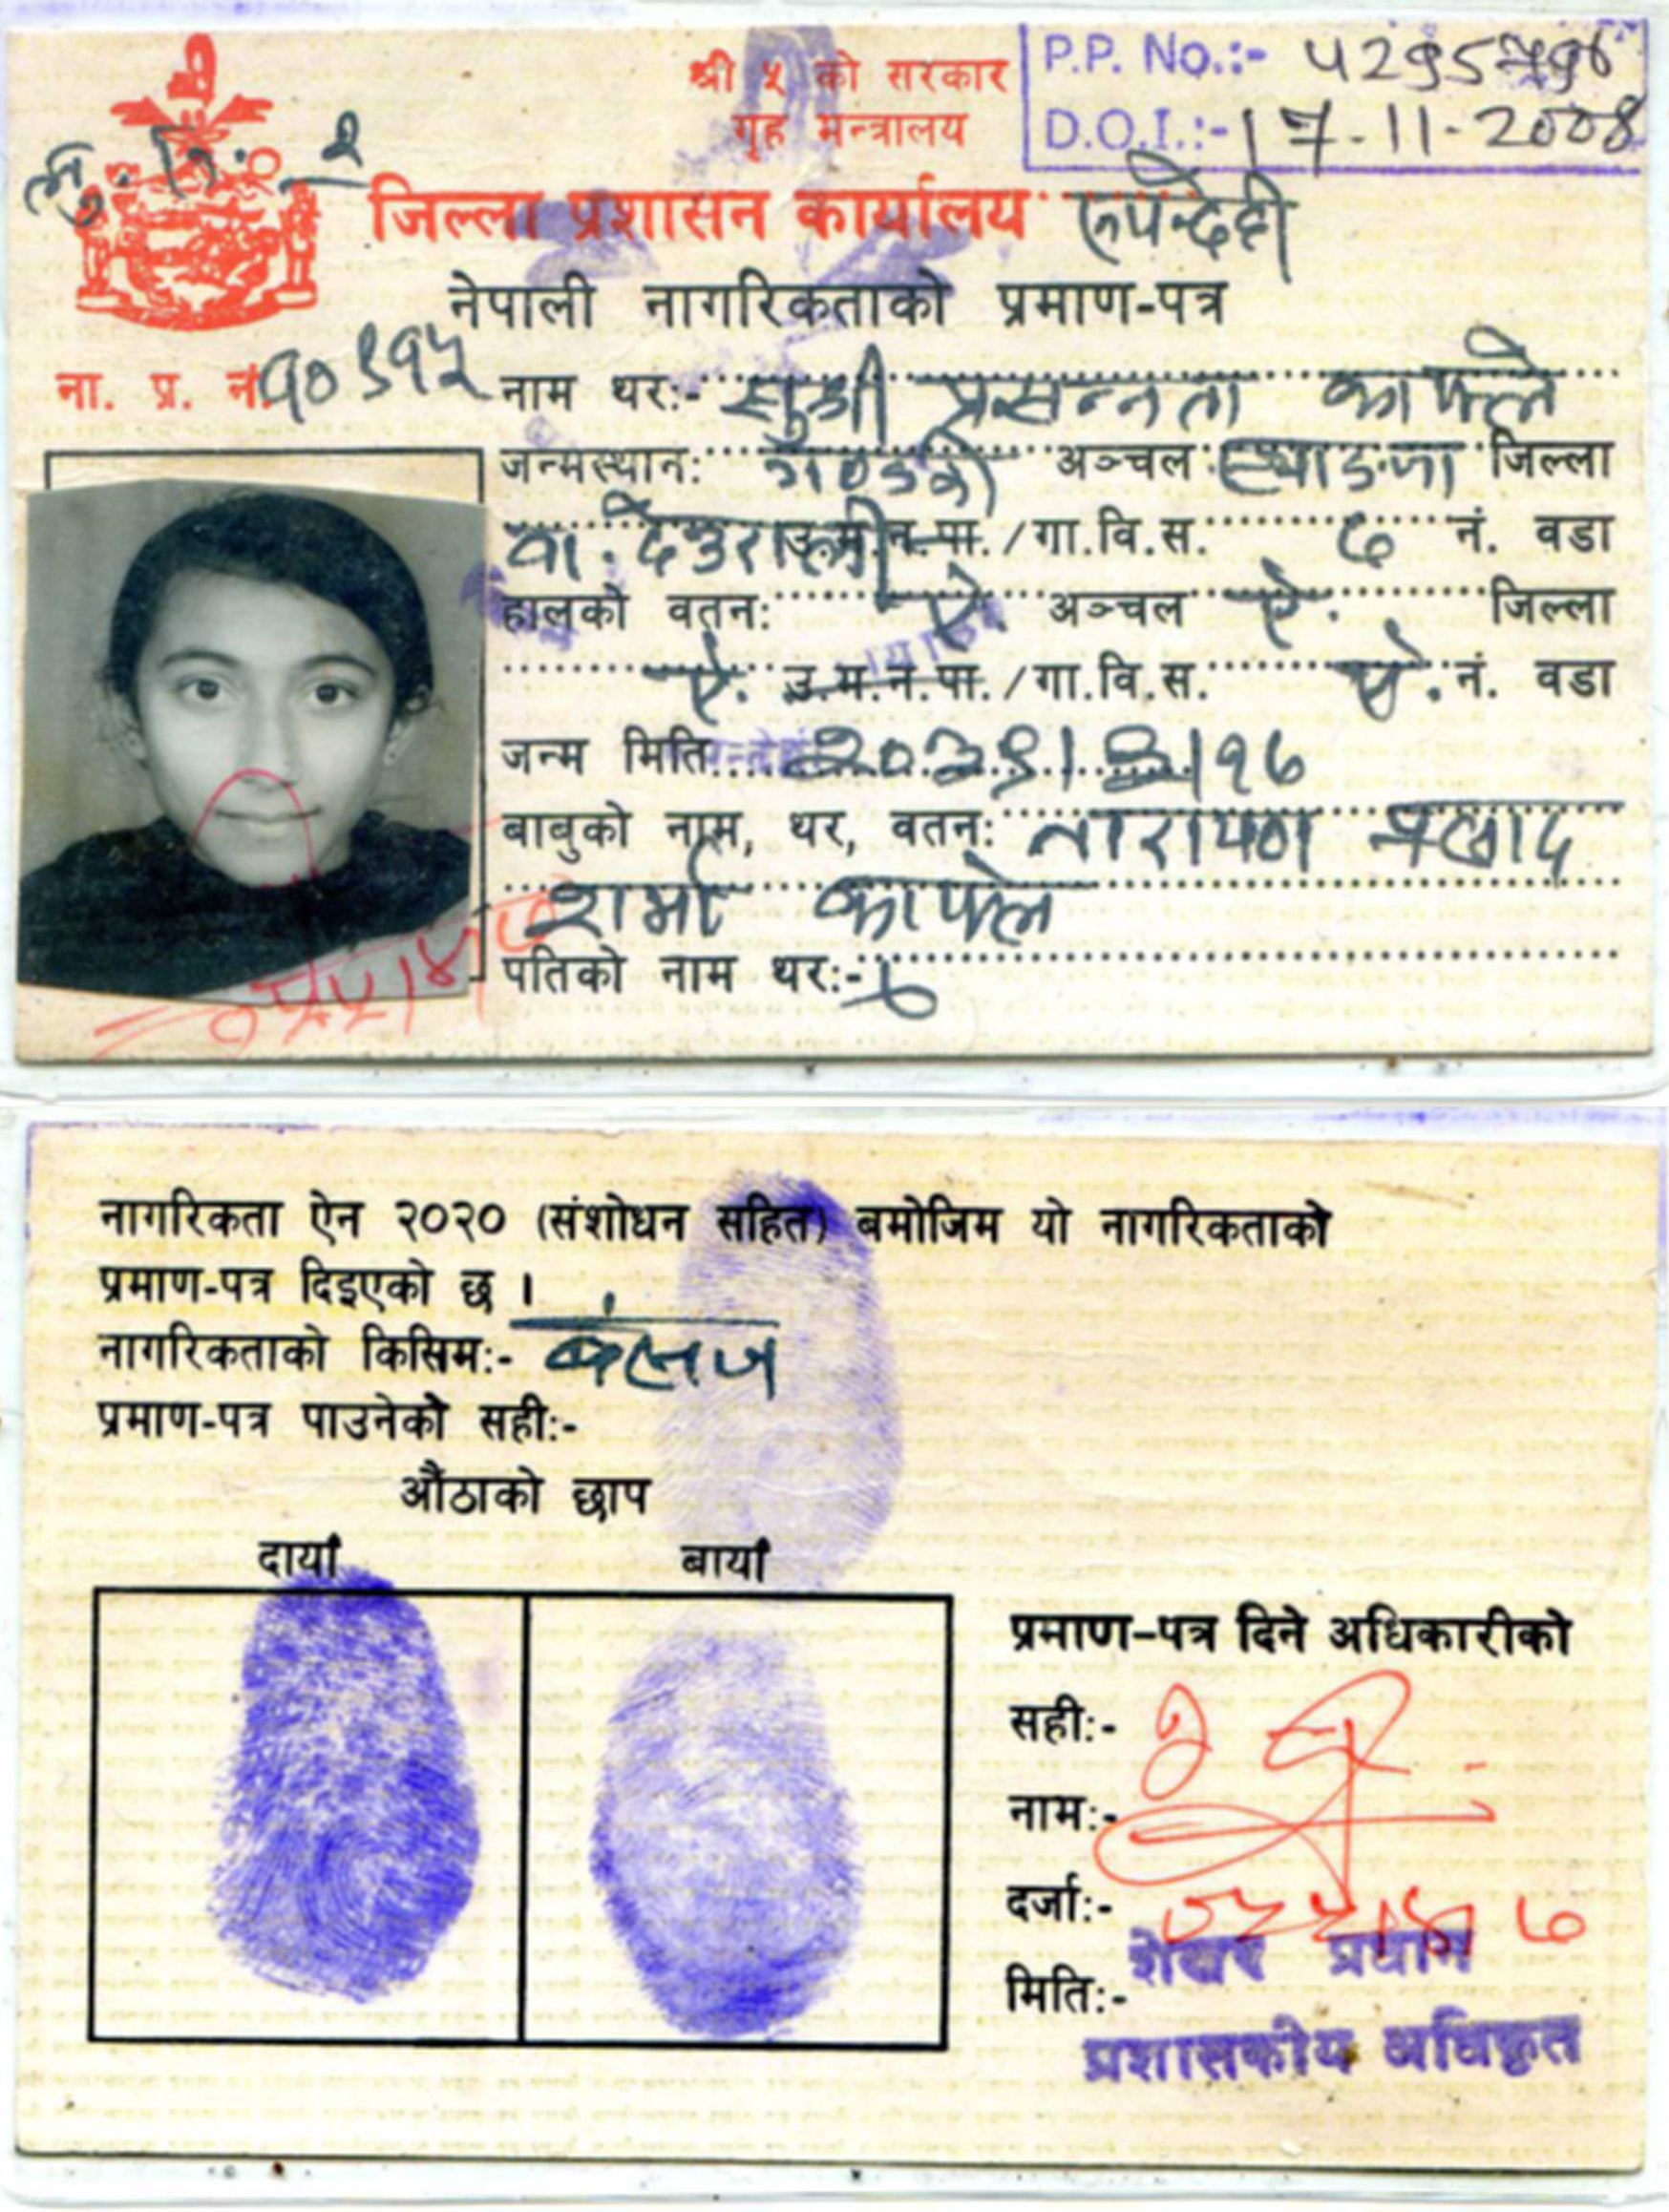 श्री ५ को सरकार
गृह मन्त्रालय
P.P. No.:-
D.O.I.:- 17-11-2008
जिल्ला प्रशासन कार्यालय रुपन्देही
नेपाली नागरिकताको प्रमाण-पत्र
ना. प्र. नं.
नाम थर:- सुश्री प्रसन्नता काफ्ले
जन्मस्थान: गण्डकी अञ्चल स्याङजा जिल्ला
वा. देउराली उ.म.न.पा./गा.वि.स. ७ नं. वडा
हालको वतन: ऐ. अञ्चल ऐ. जिल्ला
ऐ. उ.म.न.पा./गा.वि.स. ऐ. नं. वडा
जन्म मिति
बाबुको नाम, थर, वतन: नारायण प्रसाद
शर्मा काफ्ले
पतिको नाम थर:-
नागरिकता ऐन २०२० (संशोधन सहित) बमोजिम यो नागरिकताको
प्रमाण-पत्र दिइएको छ ।
नागरिकताको किसिम:- वंशज
प्रमाण-पत्र पाउनेको सही:-
औंठाको छाप
दायाँ बायाँ
प्रमाण-पत्र दिने अधिकारीको
सही:-
नाम:-
दर्जा:-
मिति:-
प्रशासकीय अधिकृत